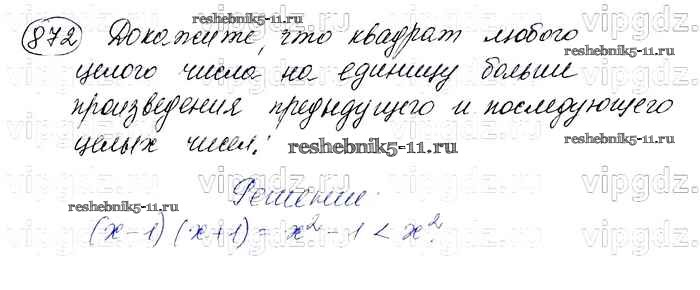 872 Докажите, что квадрат любого
целого числа на единицу больше
произведения предыдущего и последующего
целых чисел.
Решение.
(x-1)(x+1) = x² - 1 < x².
reshebnik5-11.ru
reshebnik5-11.ru
reshebnik5-11.ru
reshebnik5-11.ru
vipgdz
vipgdz
vipgdz